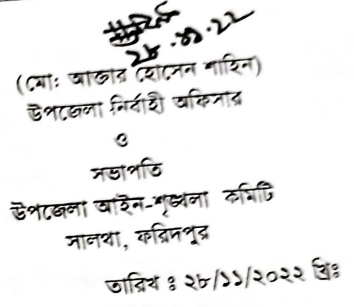 ২৮.১১.২২
(মোঃ আক্তার হোসেন শাহিন)
উপজেলা নির্বাহী অফিসার
ও
সভাপতি
উপজেলা আইন-শৃঙ্খলা কমিটি
সালথা, ফরিদপুর
তারিখ ঃ ২৮/১১/২০২২ খ্রিঃ